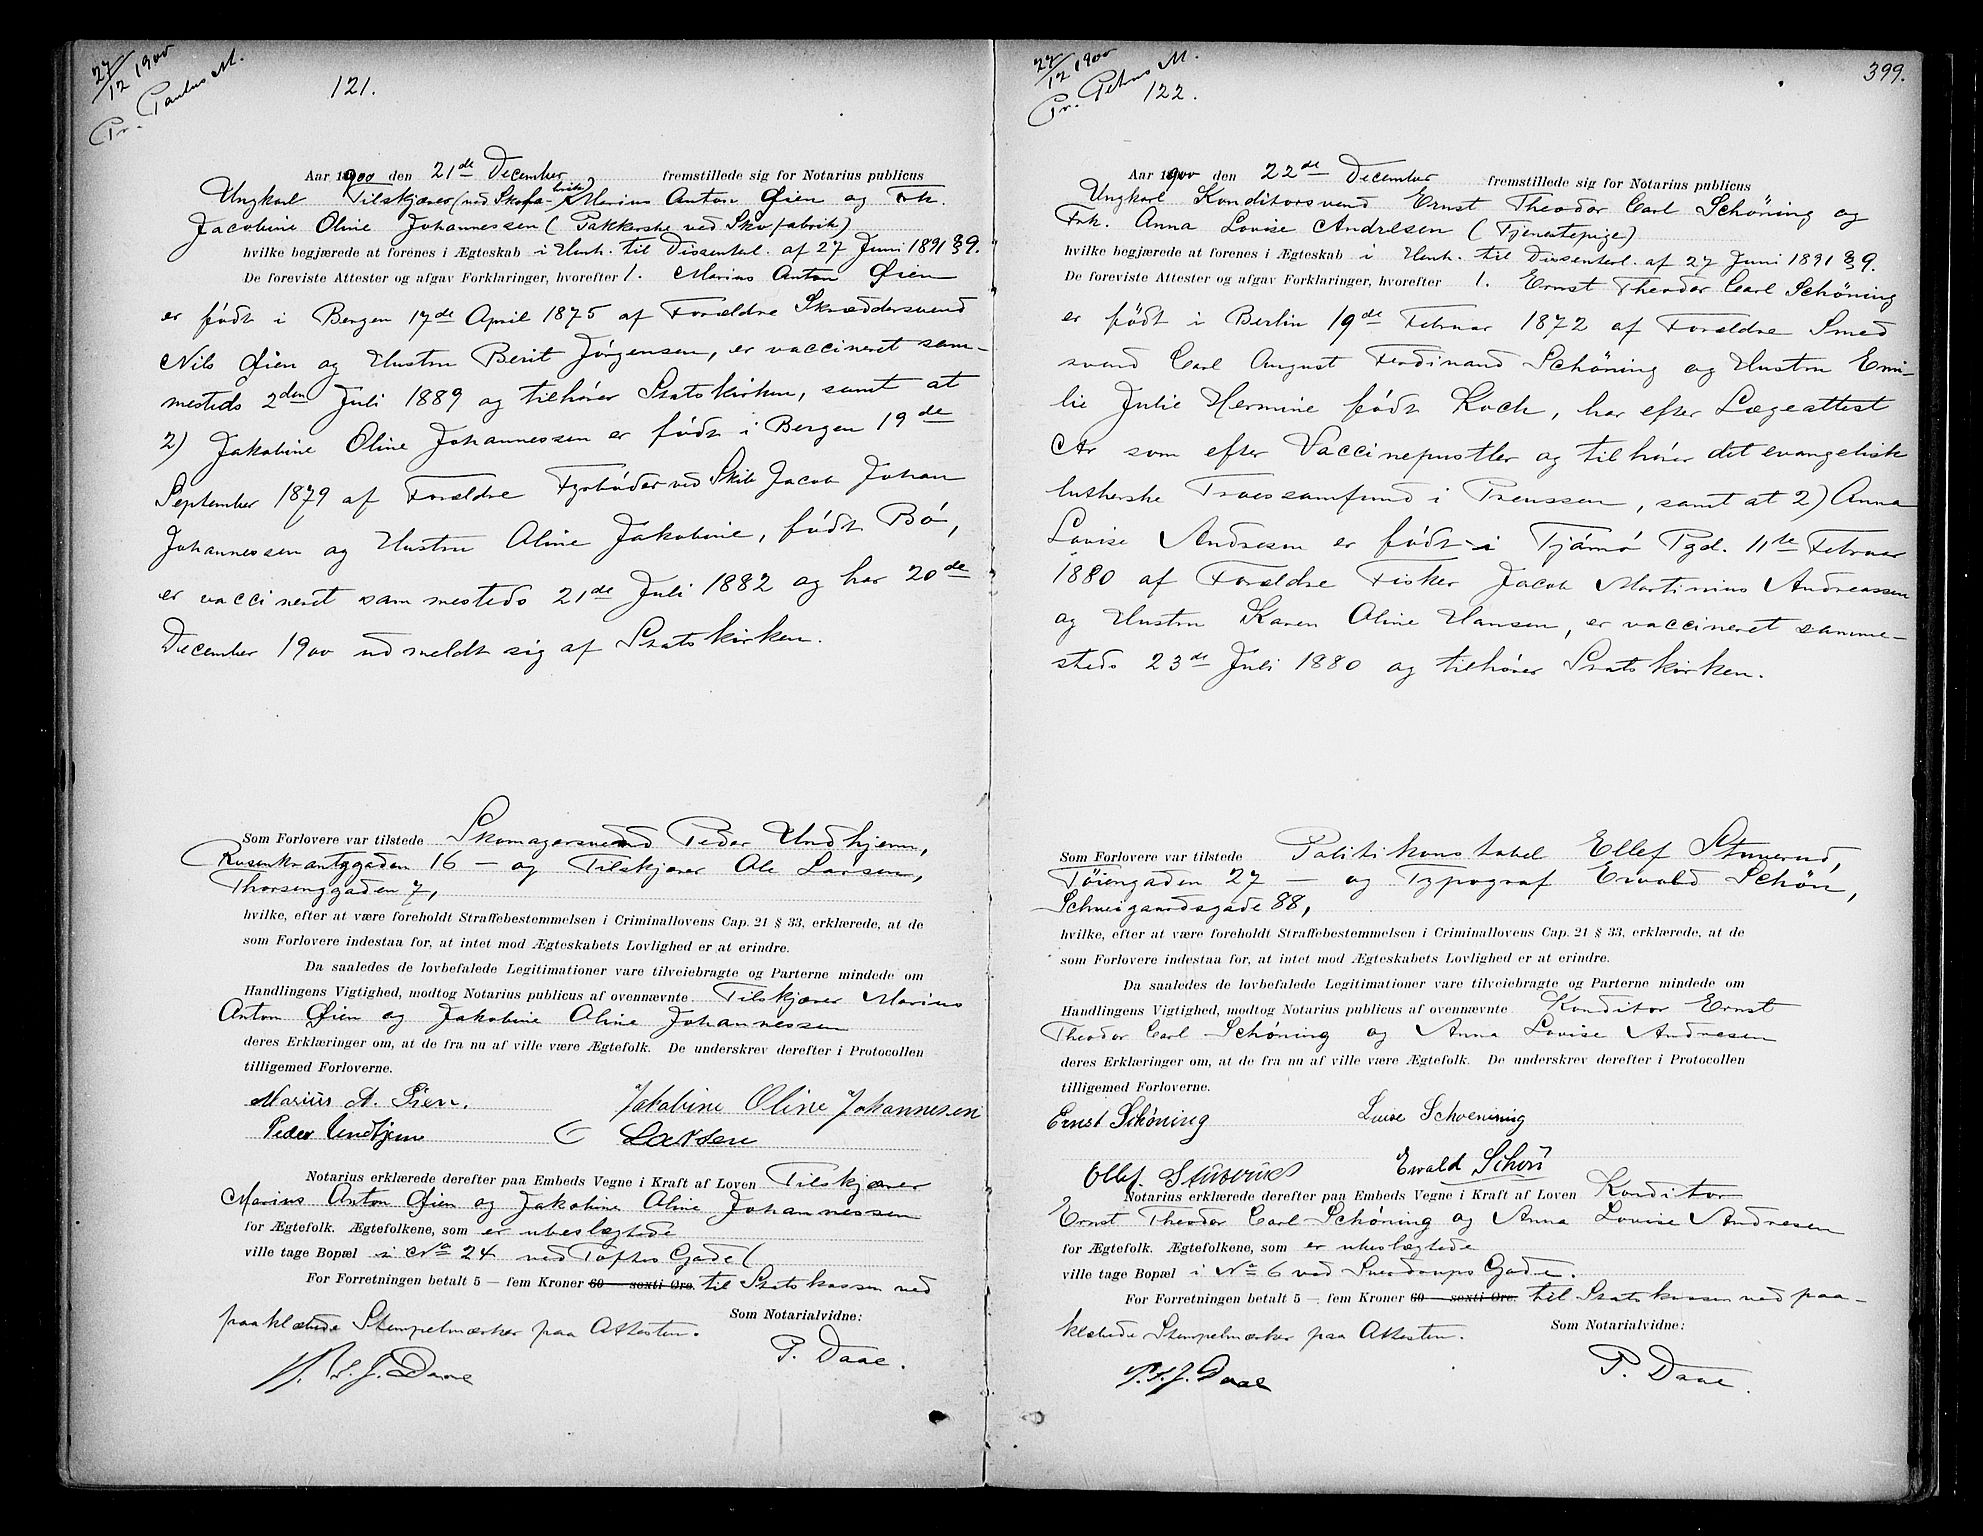 27/12 1900
Pr. Paulus M.
121.
Aar 1900 den 21de December fremstillede sig for Notarius publicus
Ungkarl Tilskjærer (ved Skofabrik) Marius Anton Øien og Frk.
Jacobine Oline Johannessen (Pakkerske ved Skofabrik)
hvilke begjærede at forenes i Ægteskab i Henh. til Dissenterl. af 27 Juni 1891 § 9.
De foreviste Attester og afgav Forklaringer, hvorefter 1. Marius Anton Øien
er født i Bergen 17de April 1875 af Forældre Skræddersvend
Nils Øien og Hustru Berit Jørgensen, er vaccineret sam-
mesteds 2den Juli 1889 og tilhører Statskirken, samt at
2) Jakobine Oline Johannessen er født i Bergen 19de
September 1879 af Forældre Fyrbøder ved Skib Jacob Johan
Johannessen og Hustru Aline Jakobine, født Bø,
er vaccineret sammesteds 21de Juli 1882 og har 20de
December 1900 udmeldt sig af Statskirken.
Som Forlovere var tilstede Skomagersvend Peder Undhjem,
Rosenkrantzgaden 16 — og Tilskjærer Ole Larsen,
Thorsenggaden 7,
hvilke, efter at være foreholdt Straffebestemmelsen i Criminallovens Cap. 21 § 33, erklærede, at de
som Forlovere indestaa for, at intet mod Ægteskabets Lovlighed er at erindre.
Da saaledes de lovbefalede Legitimationer vare tilveiebragte og Parterne mindede om
Handlingens Vigtighed, modtog Notarius publicus af ovennævnte Tilskjærer Marius
Anton Øien og Jakobine Oline Johannessen
deres Erklæringer om, at de fra nu af ville være Ægtefolk. De underskrev derefter i Protocollen
tilligemed Forloverne.
Marius A. Øien. Jakobine Oline Johannesen
Peder Undhjem O Larsen
Notarius erklærede derefter paa Embeds Vegne i Kraft af Loven Tilskjærer
Marius Anton Øien og Jakobine Oline Johannessen
for Ægtefolk. Ægtefolkene, som er ubeslægtede
ville tage Bopæl i No 24 ved Toftes Gade
For Forretningen betalt 5 — fem Kroner 60 — sexti Øre. til Statskassen ved
paaklæbede Stempelmærker paa Attesten. Som Notarialvidne:
P. Daae.
27/12 1900
Pr. Petrus M.
122.
399.
Aar 1900 den 22de December fremstillede sig for Notarius publicus
Ungkarl Konditorsvend Ernst Theodor Carl Schöning og
Frk. Anna Lovise Andresen (Tjenestepige)
hvilke begjærede at forenes i Ægteskab i Henh. til Dissenterl. af 27 Juni 1891 § 9.
De foreviste Attester og afgav Forklaringer, hvorefter 1. Ernst Theodor Carl Schöning
er født i Berlin 19de Februar 1872 af Forældre Smed
svend Carl August Ferdinand Schöning og Hustru Emi-
lie Julie Hermine født Koch, har efter Lægeattest
Ar som efter Vaccinepustler og tilhører det evangelisk
lutherske Troessamfund i Preussen, samt at 2) Anna
Lovise Andresen er født i Tjømø Pgd. 11te Februar
1880 af Forældre Fisker Jacob Martinius Andreassen
og Hustru Karen Oline Hansen, er vaccineret samme-
steds 23de Juli 1880 og tilhører Statskirken.
Som Forlovere var tilstede Politikonstabel Ellef Stuverud,
Tøiengaden 27 — og Typograf Ewald Schön,
Schweigaardsgade 88,
hvilke, efter at være foreholdt Straffebestemmelsen i Criminallovens Cap. 21 § 33, erklærede, at de
som Forlovere indestaa for, at intet mod Ægteskabets Lovlighed er at erindre.
Da saaledes de lovbefalede Legitimationer vare tilveiebragte og Parterne mindede om
Handlingens Vigtighed, modtog Notarius publicus af ovennævnte Konditor Ernst
Theodor Carl Schöning og Anna Lovise Andresen
deres Erklæringer om, at de fra nu af ville være Ægtefolk. De underskrev derefter i Protocollen
tilligemed Forloverne.
Ernst Schöning Luise Schoenining
Ellef Stuverud Ewald Schön
Notarius erklærede derefter paa Embeds Vegne i Kraft af Loven Konditor
Ernst Theodor Carl Schöning og Anna Lovise Andresen
for Ægtefolk. Ægtefolkene, som er ubeslægtede
ville tage Bopæl i No 6 ved Sverdrups Gade.
For Forretningen betalt 5 — fem Kroner 60 — sexti Øre. til Statskassen ved paa-
klæbede Stempelmærker paa Attesten. Som Notarialvidne:
P. Daae.